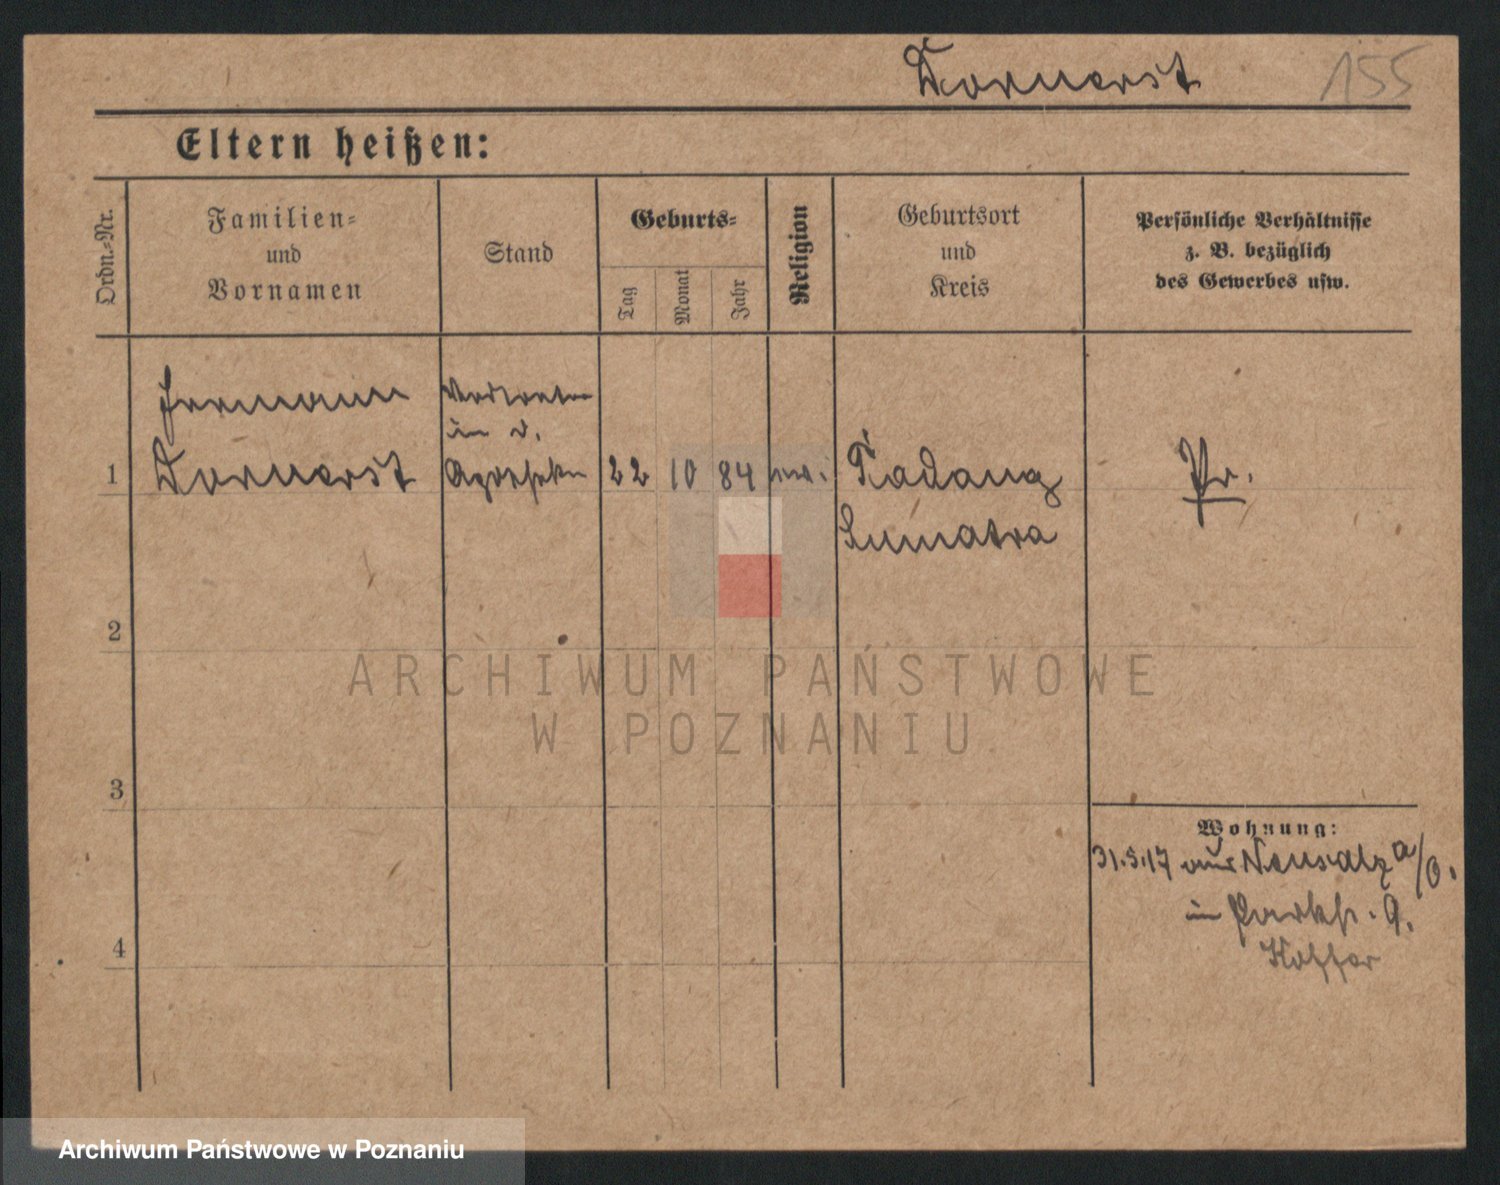 Dornerst 155
Eltern heißen:
Ordn.-Nr.
Familien-
und
Vornamen
Stand
Geburts-
Tag
Monat
Jahr
Religion
Geburtsort
und
Kreis
Persönliche Verhältnisse
z. B. bezüglich
des Gewerbes usw.
Hermann
in d.
1 Dornerst 22 10 84 Padang Pr.
Sumatra
2
3
4
Wohnung:
31.5.17 aus Neusalz a/O.
in Parkstr. 9.
ARCHIWUM PAŃSTWOWE
W POZNANIU
Archiwum Państwowe w Poznaniu